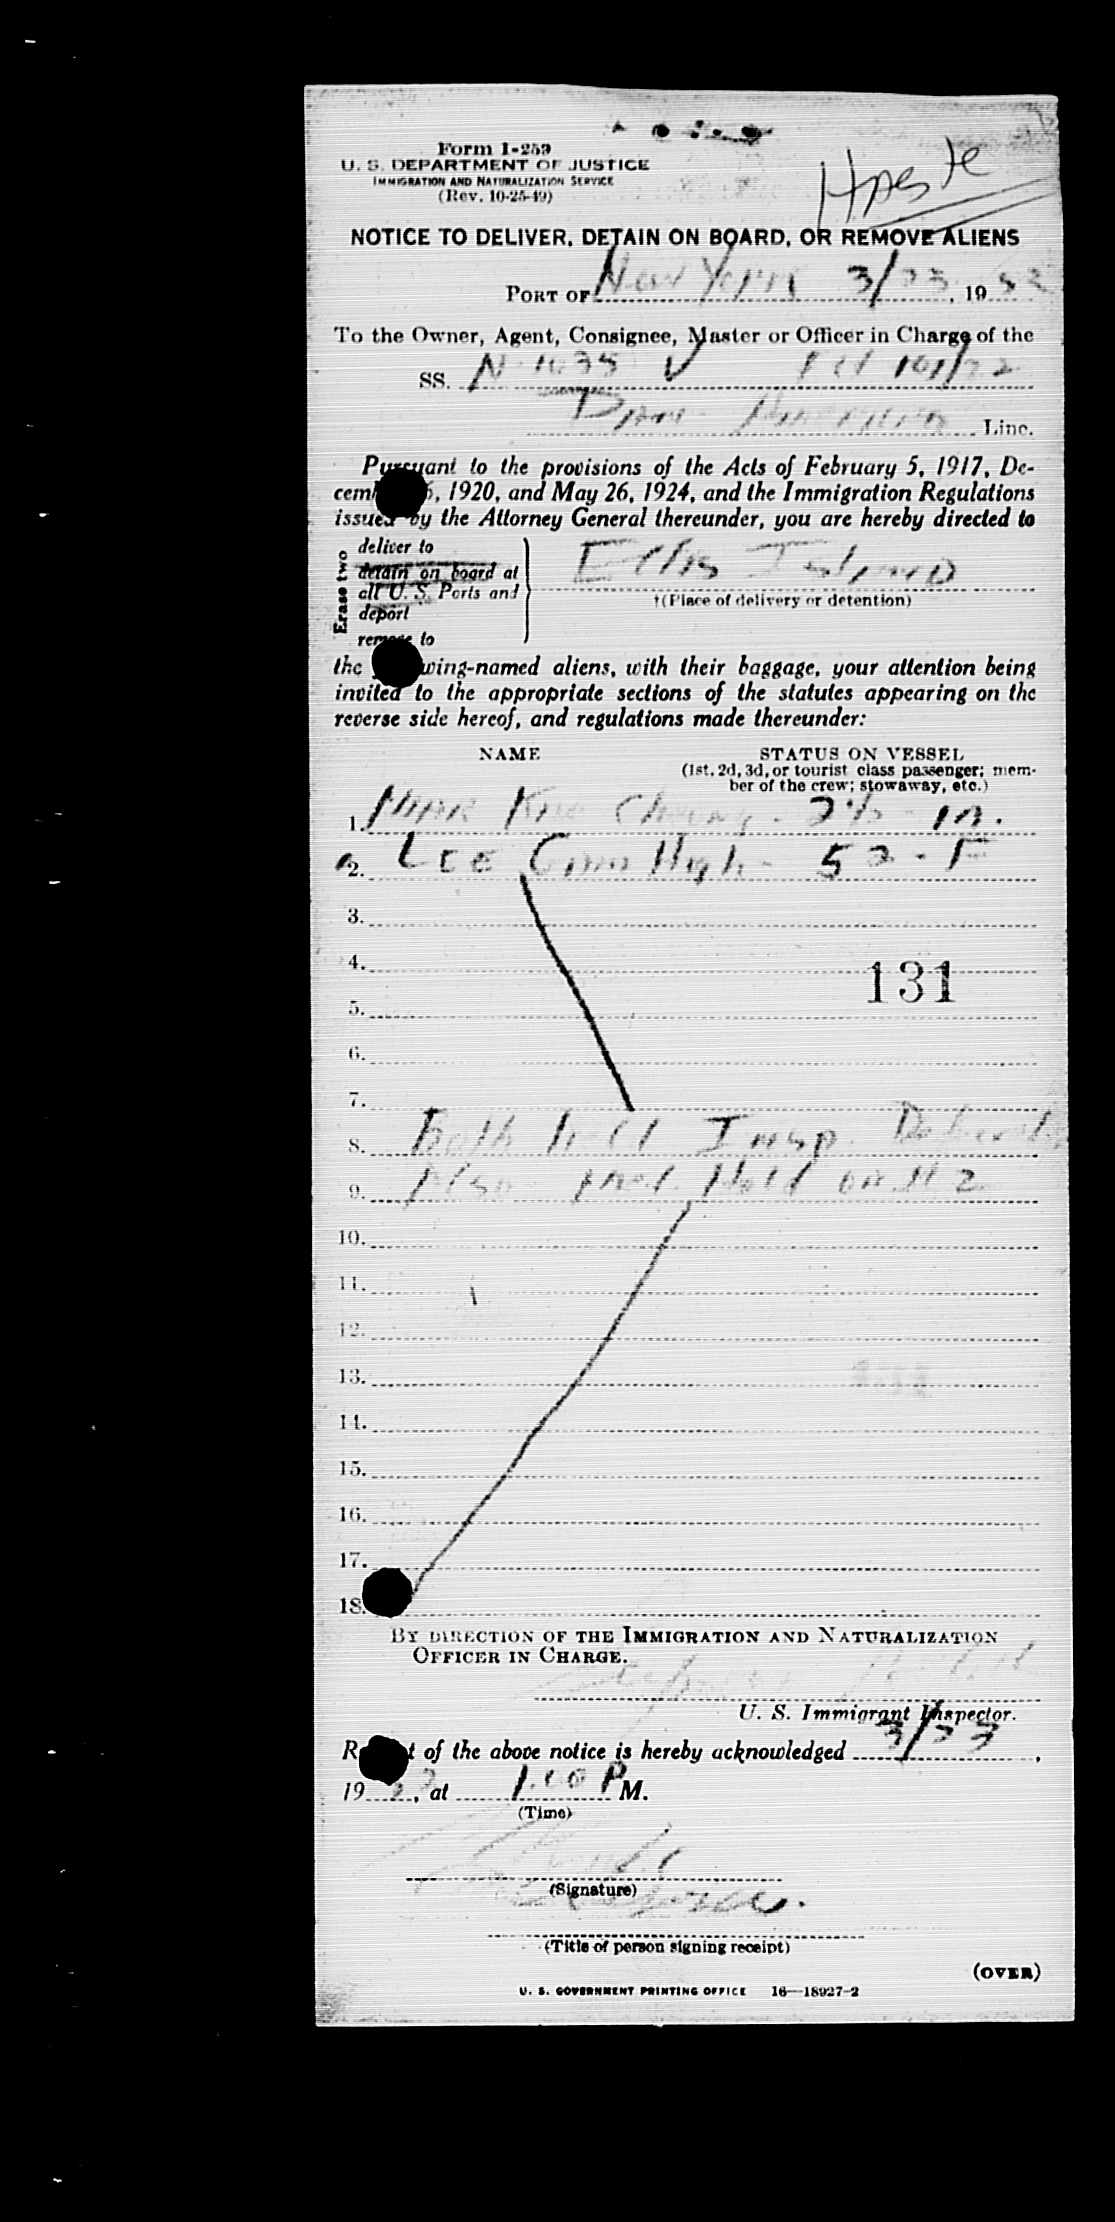 Form I-259
U. S. DEPARTMENT OF JUSTICE
IMMIGRATION AND NATURALIZATION SERVICE
(Rev. 10-25-49)
Haste
NOTICE TO DELIVER, DETAIN ON BOARD, OR REMOVE ALIENS
PORT OF New York 3/23, 1952
To the Owner, Agent, Consignee, Master or Officer in Charge of the
SS. N-1035 V
Pan American Line.
Pursuant to the provisions of the Acts of February 5, 1917, De-
cem 5, 1920, and May 26, 1924, and the Immigration Regulations
issued by the Attorney General thereunder, you are hereby directed to
Erase two
deliver to
detain on board at
all U. S. Ports and
deport
remove to
Ellis Island
†(Place of delivery or detention)
the wing-named aliens, with their baggage, your attention being
invited to the appropriate sections of the statutes appearing on the
reverse side hereof, and regulations made thereunder:
NAME
STATUS ON VESSEL
(1st, 2d, 3d, or tourist class passenger; mem-
ber of the crew; stowaway, etc.)
1. Mark - M.
2. Lee High - 52 - F
3.
4.
131
5.
6.
7.
8. Both held Insp.
9. Also Hold on # 2
10.
11.
12.
13.
14.
15.
16.
17.
18.
BY DIRECTION OF THE IMMIGRATION AND NATURALIZATION
OFFICER IN CHARGE.
U. S. Immigrant Inspector.
R t of the above notice is hereby acknowledged 3/23,
19 52, at 1.00 P M.
(Time)
(Signature)
(Title of person signing receipt)
(OVER)
U. S. GOVERNMENT PRINTING OFFICE 16—18927-2